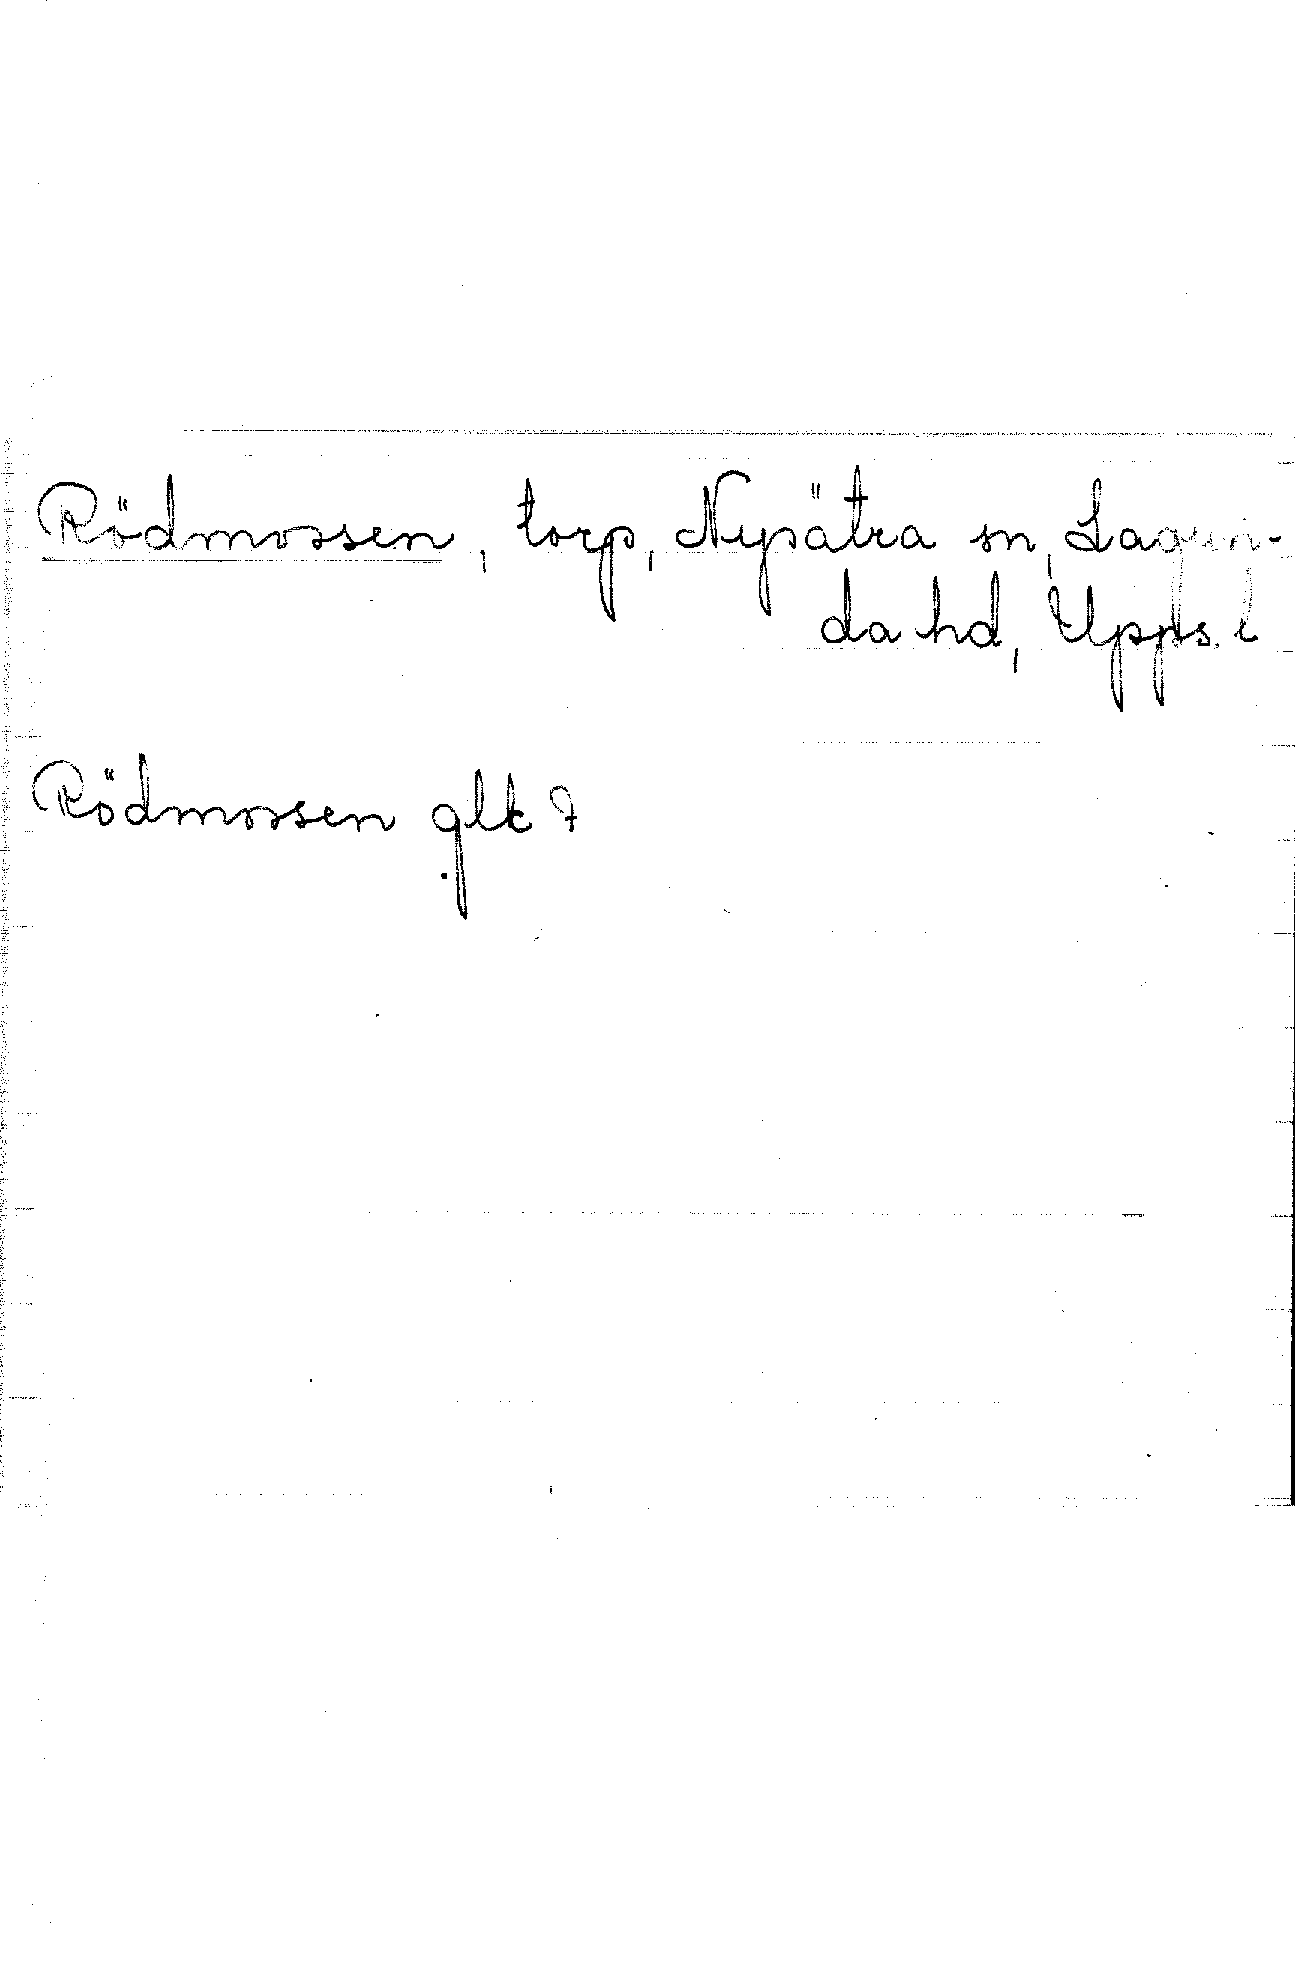 Rödmossen, torp, Nysätra sn, Lagun-
da hd, Upps. l
Rödmossen glk 7